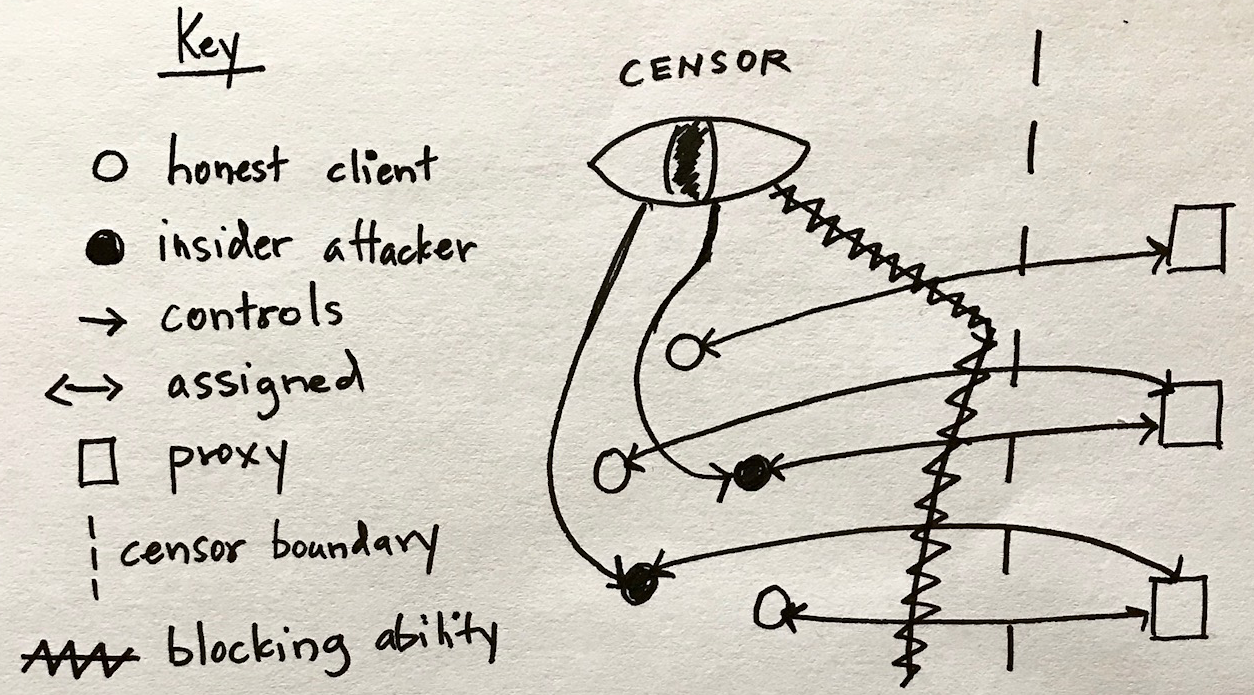 Key
CENSOR
honest client
insider attacker
controls
assigned
proxy
censor boundary
blocking ability